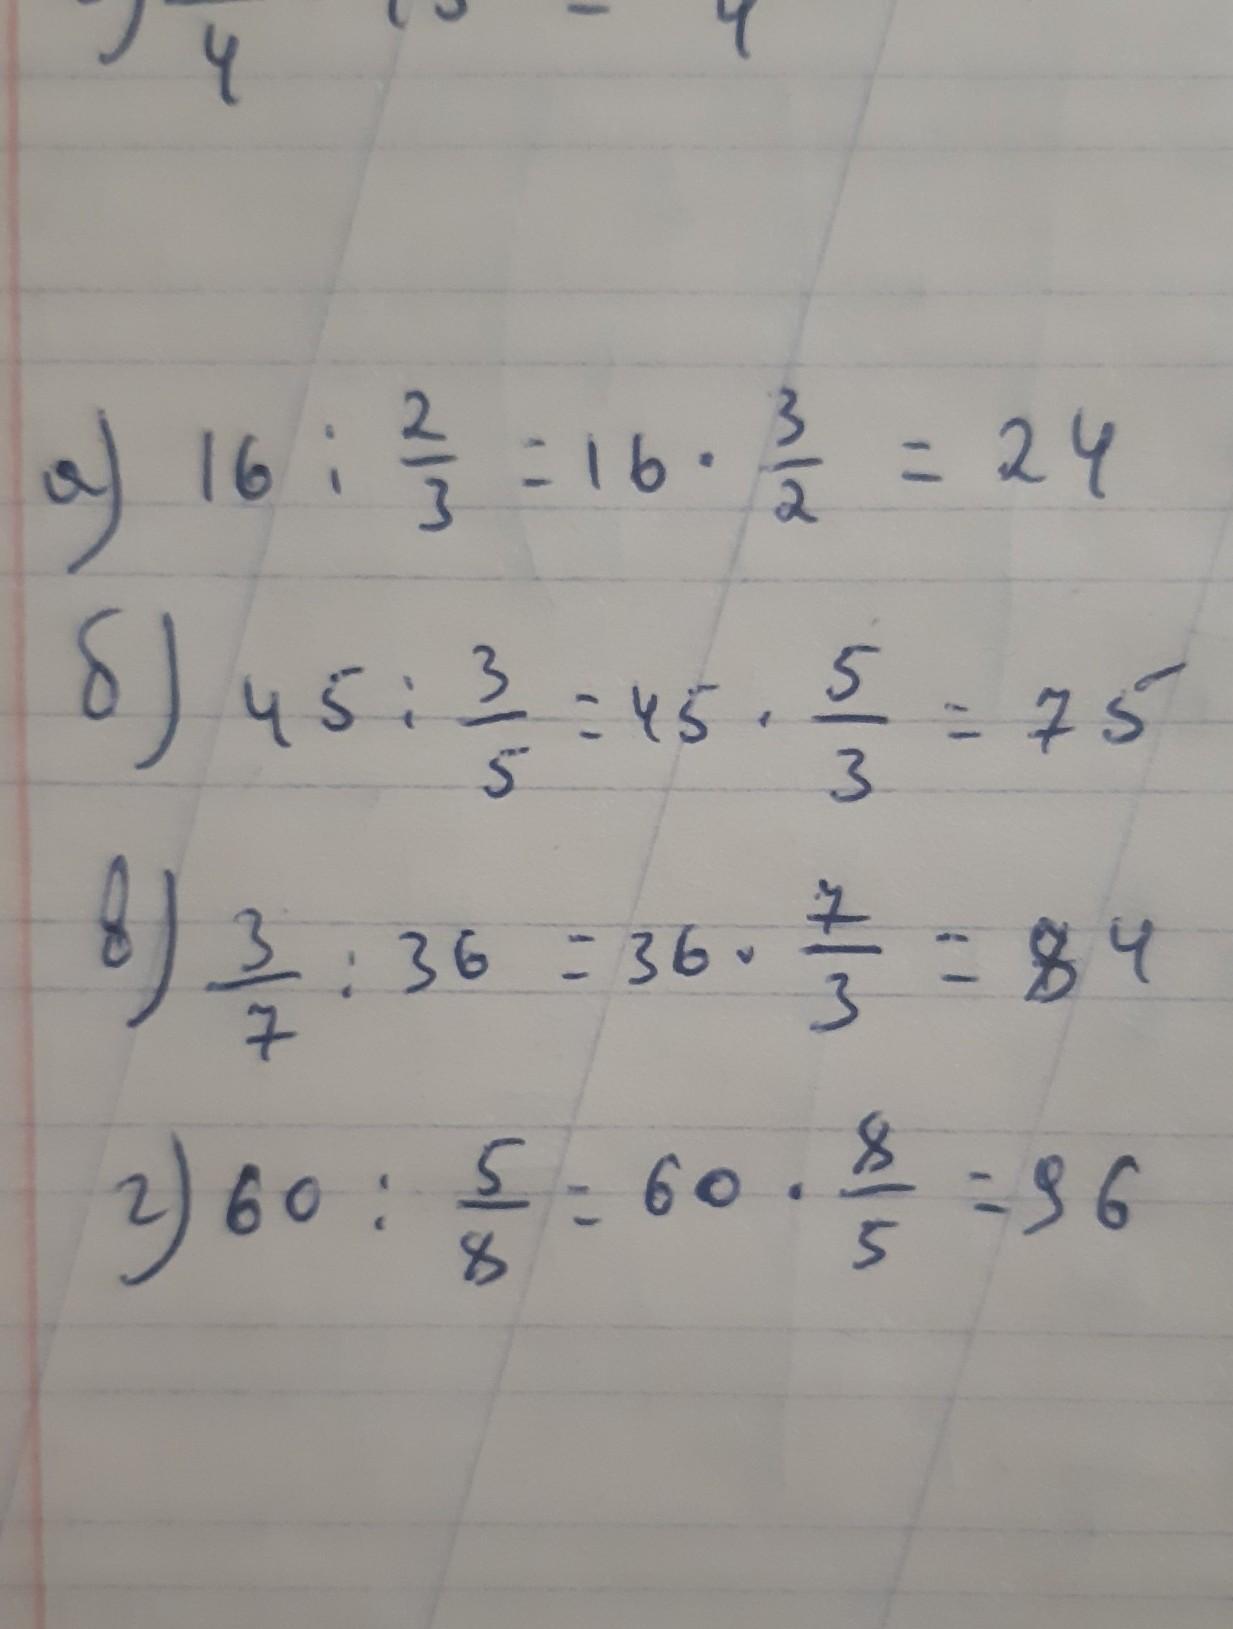 4 4
а) 16 : 2/3 = 16 · 3/2 = 24
б) 45 : 3/5 = 45 · 5/3 = 75
в) 3/7 : 36 = 36 · 7/3 = 84
г) 60 : 5/8 = 60 · 8/5 = 96